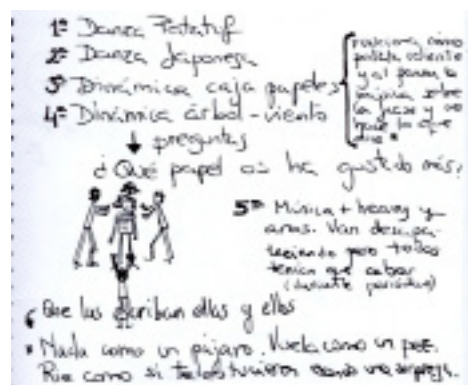 1º Danza
2º Danza Japonesa
3º Dinámica caja papeles
4º Dinámica árbol-viento
funciona como
patata caliente
y al parar la
música
y se
hace lo que
dice *
preguntas
¿Qué papel os ha gustado más?
5º Música +
aros. Van desapa-
reciendo pero todos
tienen que caber
6 Que las escriban ellas y ellos
* Nada como un pájaro. Vuela como un pez.
Ríe como si